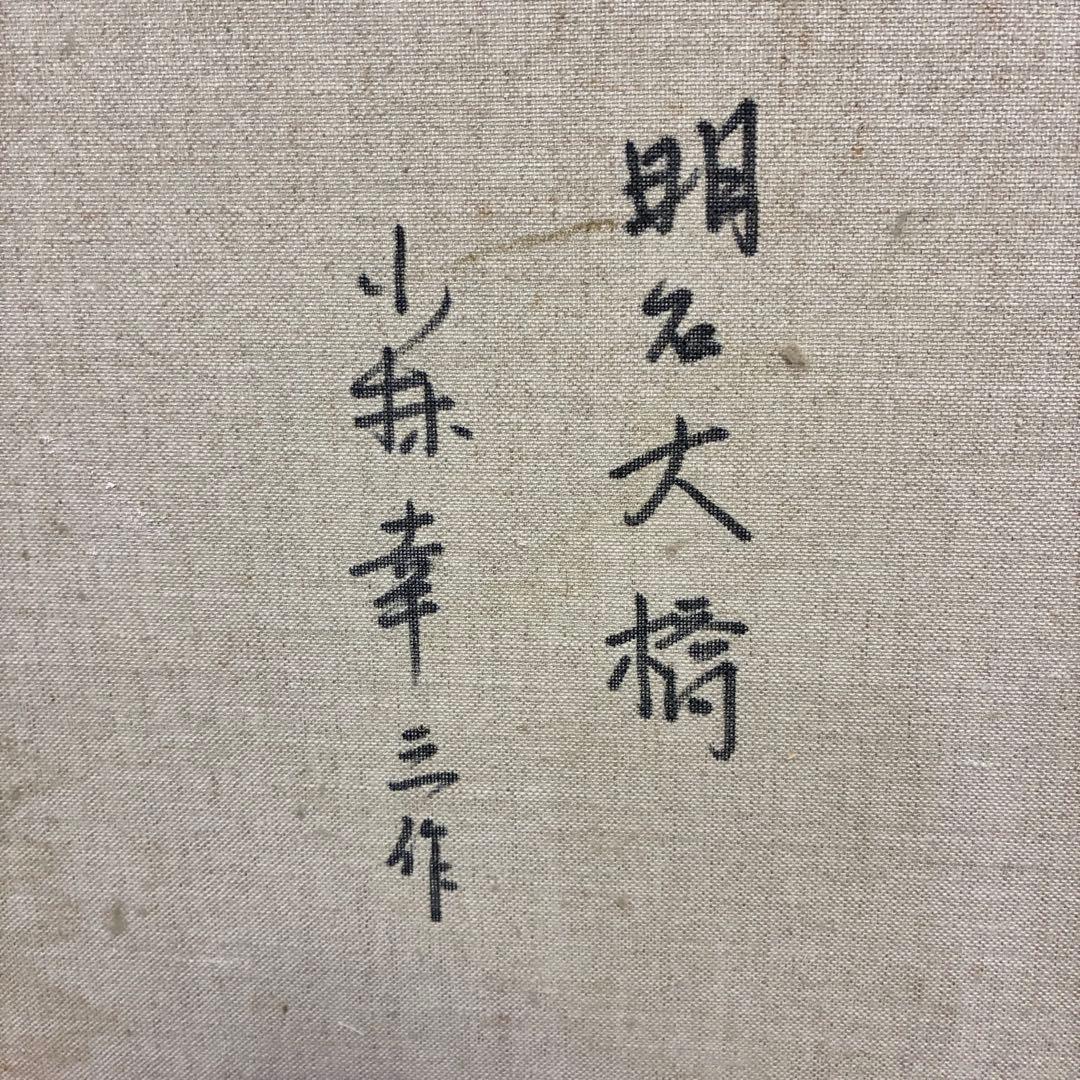 明石大橋
小林幸三作